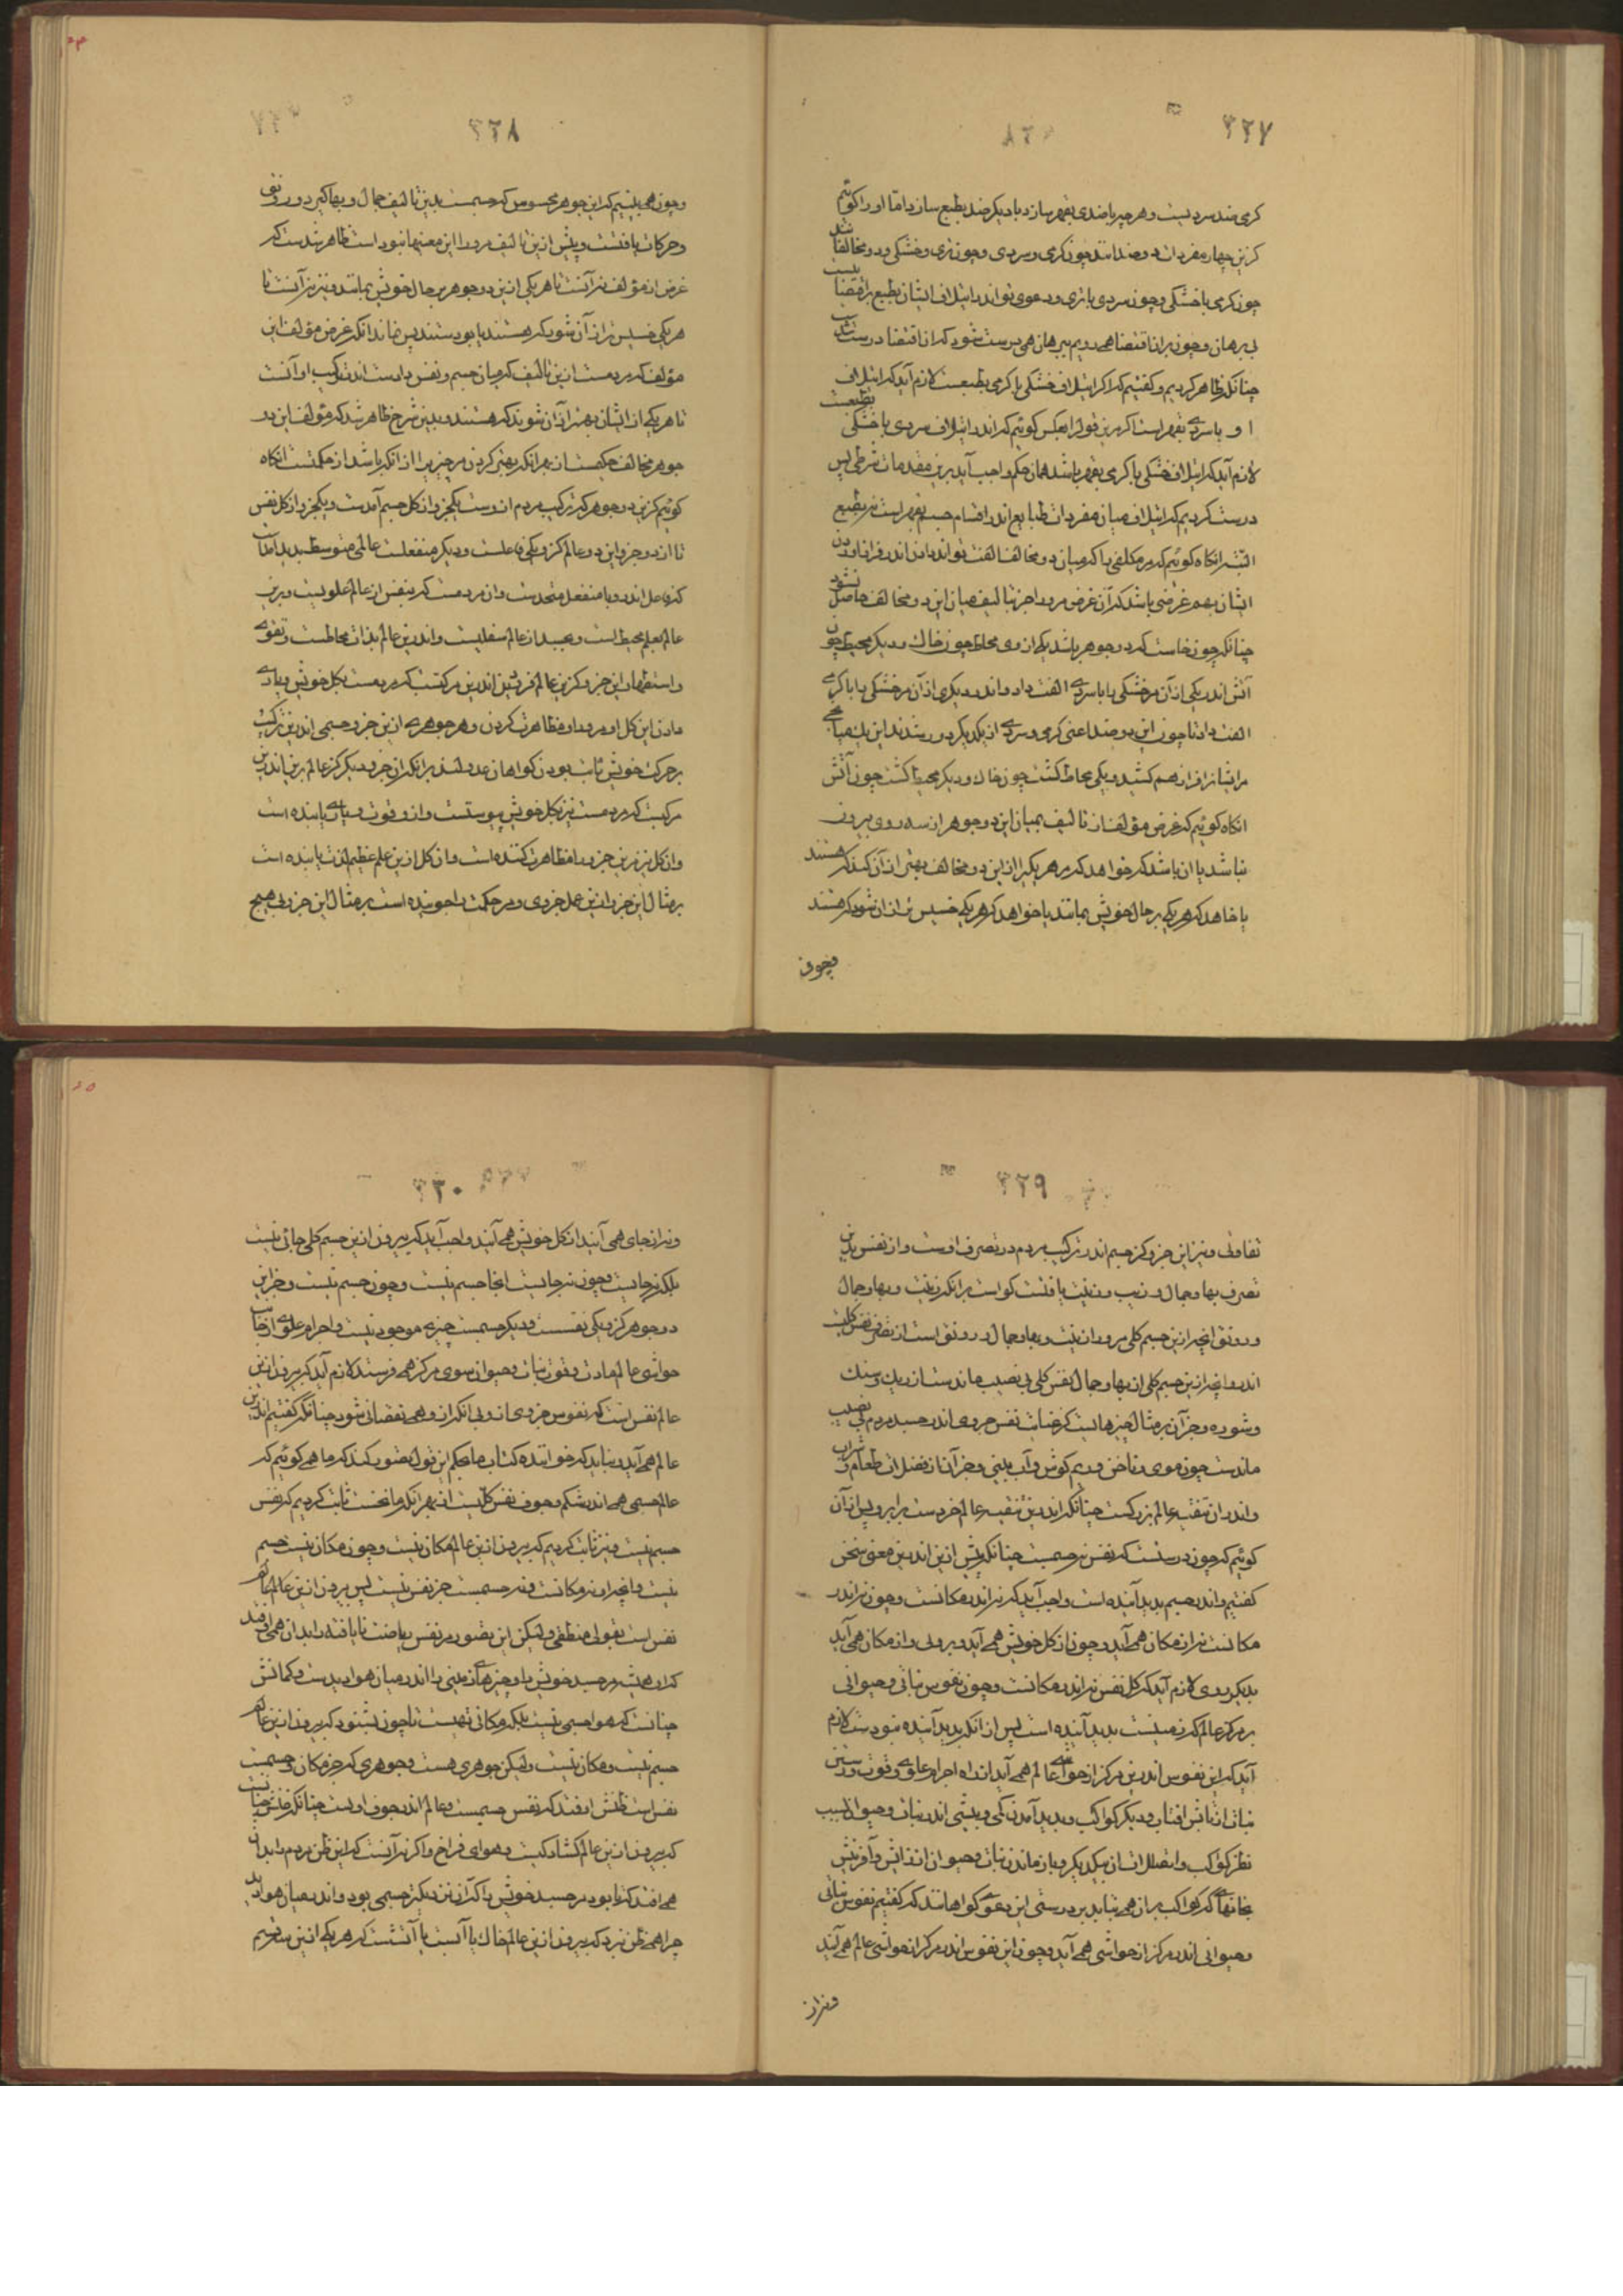 ٢٢٧
گرمی ضد سردیست و هر چیز با ضدی بقهر سازد با دیگر ضد بطبع سازد اما او را گوئیم
کزین چهار مفردات دو ضدانند چون گرمی و سردی و چون تری و خشکی و دو مخالفانند
چون گرمی با خشکی و چون سردی با تری و دعوی تو اندر ایتلاف ایشان بطبع باقتضا نیست
بی برهان و چون بر اقتضا همی رویم ببرهان همی درست شود که اقتضا درست نیست
چنانکه ظاهر کردیم و گفتیم که اگر ایتلاف خشکی با گرمی بطبعست لازم آید که ایتلاف
او با سردی بقهر است اگر برین قول بعکس گوئیم که اندر ایتلاف سردی با خشکی بطبعست
لازم آید که ایتلاف خشکی با گرمی بقهر باشد همان حکم واجب آید برین مقدمات شرطی پس
درست کردیم که ایتلاف میان مفردات طبایع اندر اقسام جسم بقهر است نه بطبع
البته انگاه گوئیم که هر مکلفی را که میان دو مخالف الفت تواند دادن اندر فراز آوردن
ایشان بهم غرضی باشد که آن غرض مر او را جز بتالیف میان این دو مخالف حاصل نشود
چنانکه چون خاست که دو جوهر باشد یکی از وی محاط چون خاک و دیگر محیط چون
آتش اندر یکی از آن مر خشکی را با سردی الفت داد و اندر دیگری از آن مر خشکی را با گرمی
الفت داد تا چون این دو ضد اعنی گرمی و سردی از یکدیگر دور شدند این یک میانجی
مر ایشان را فراز هم کشید و یکی محاط گشت چون خاک و دیگر محیط گشت چون آتش
انگاه گوئیم که غرض مؤلف از تالیف میان این دو جوهر از سه روی بیرون
نباشد یا آن باشد که خواهد که مر هر یکی را از این دو مخالف بهتر از آن کند که هستند
یا خاهد که هر یکی بر حال خویش بمانند یا خواهد که هر یکی خسیس تر از آن شود که هستند
وچون
٢٢٨
وچون همی بینیم که این جوهر محسوس که جسمست بدین تالیف جمال و بها گیرد و رونق
و حرکات یافتست و پیش از این تالیف مر او را این معنیها نبود است ظاهر شدست که
غرض از مؤلف نه آنست تا هر یکی از این دو جوهر بر حال خویش بماند و نیز نه آنست تا
هر یکی خسیس تر از آن شود که هستند یا بودستند پس نماند انکه غرض مؤلف این
مؤلف که مردمست ازین تالیف که میان جسم و نفس داد است اندر ترکیب او آنست
تا هر یکی از ایشان بهتر از آن شوند که هستند و بدین شرح ظاهر شد که مؤلف این دو
جوهر مخالف حکیمست از بهر انکه بهتر کردن مر چیز را از انکه باشد از حکمتست انگاه
گوئیم کزین دو جوهر که ترکیب مردم از وست یکجزو از کل جسم آمدست و یکجزو از کل نفس
تا از دو جزو این دو عالم کزو یکی فاعلست و دیگر منفعلست عالمی متوسط پدید آمدست
که فاعل اندرو با منفعل متحدست و آن مردمست که بنفس از عالم علویست و برین
عالم بعلم محیط است و بجسد از عالم سفلیست و اندرین عالم بذات محاطست و تقوی
و استظهار این جزو کزین عالم آفرینش اندرین مرکبست که مردمست بکل خویش و یاری
دادن این کل او مر او را و مظاهرت کردن و هر جوهری از این جزو جسمی اندرین ترکیب
بر حرکت خویش ثابت بودن گواهان عدولند بر انکه ان جزو دیگر کز عالم برین اندرین
مرکبست که مردمست نیز بکل خویش پیوستست و از و قوت و یاری یابنده است
و ان کل نیز مرین جزو را مظاهرت کننده است و ان کل ازین علم عظیم لذت یابنده است
بر مثال این جزو از این عمل جزوی و مر حکمت را جوینده است بر مثال این جزو بی هیچ
٢٢٩
تفاوتی و نیز این جزو کز جسم اندر ترکیب مردم در تصرف اوست و از نفس بدین
تصرف بها و جمال و زیب و زینت یافتست گواست بر انکه زینت و بها و جمال
و رونق انچه ازین جسم کلی مر او را زینت و بها و جمال و رونق است از تصرف نفس کلیست
اندرو انچه ازین جسم کلی از بها و جمال نفس کلی بی نصیب ماندست از ریگ و سنگ
و شوره و جز آن بر مثال چیزهاییست کز عنایت نفس جزوی اندر جسد مردم بی نصیب
ماندست چون موی و ناخن و ریم گوش و آب بینی و جز آن از فضل از طعام و شراب
و اندر ان بنیه عالم بزرگست چنانکه اندرین بنیه عالم خردست برابر و پس از آن
گوئیم که چون درستست که نفس نه جسمست چنانکه پیش از این اندرین معنی سخن
گفتیم و اندر جسم پدید آینده است واجب آید که نه اندر مکانست و چون نه اندر
مکانست نه از مکان همی آید و چون از کل خویش همی آید و بر وی و از مکان همی آید
بدیگر روی لازم آید که کل نفس نه اندر مکانست و چون نفوس نباتی و حیوانی
بر مرکز عالم که زمینست پدید آینده است پس از انکه پدید آینده نبودست لازم
آید که این نفوس اندرین مرکز از حواشی عالم همی آید از راه اجرام علوی و قوت و رستن
نبات از تابش آفتاب و دیگر کواکب و پدید آمدن کمی و بیشی اندر نبات و حیوان بسبب
نظر کواکب و اتصالات ایشان بیکدیگر و باز ماندن نبات و حیوان از زایش و آفرینش
بجایهایی که کواکب بر ان همی نتابد بر درستی این دعوی گواهانند که گفتیم نفوس نباتی
و حیوانی اندر مرکز از حواشی همی آید و چون این نفوس اندر مرکز از حواشی عالم همی آیند
و نه از
٢٣٠
و نه از جای همی آیند از کل خویش همی آیند واجب آید که بیرون ازین جسم کلی جائی نیست
بلکه نه جایست و چون نه جایست انجا جسم نیست و چون جسم نیست و جز این
دو جوهر کزو یکی نفسست و دیگر جسمست چیزی موجود نیست و اجرام علوی از جانب
حواشی عالم مادت و قوت نبات و حیوان سوی مرکز همی فرستند لازم آید که بیرون ازین
عالم نفس است که نفوس جزوی از وی انکه از و همی نقصانی شود چنانکه گفتیم اندرین
عالم همی آید و نباید که خواننده کتاب ما بحکم این قول تصور کند که ما همی گوئیم که
عالم جسمی همی اندر شکم و جوف نفس کلیست از بهر انکه ما نخست ثابت کردیم که نفس
جسم نیست و نیز ثابت کردیم که بیرون ازین عالم مکان نیست و چون مکان نیست جسم
نیست و انچه او نه مکانست و نه جسمست جز نفس نیست پس بیرون از این عالم جای
نفس است بقولی منطقی و لیکن این تصور مر نفس ریاضت نایافته را بدان همی اوفتد
که او همیشه مر جسد خویش را و چیزهای زمینی را اندر میان هوا دیدست و گمانش
چنانست که هوا جسمی نیست بلکه مکانی تهیست تا چون بشنود که بیرون از این عالم
جسم نیست و مکان نیست ولیکن جوهری هست و جوهری که جز مکان و جسمست
نفس است ظنش اوفتد که نفس جسمست و عالم اندر جوف اوست چنانکه ظنش چنانست
که بیرون از این عالم گشادگیست و هوای فراخ و اگر نه آنست که این ظن مردم را بدان
همی افتد که تا بود مر جسد خویش را گران نزدیکتر جسمی بود و اندر میان هوا دید
چرا همی ظن نبرد که بیرون از این عالم خاک یا آبست یا آتشست که هر یکی از این سه قسم